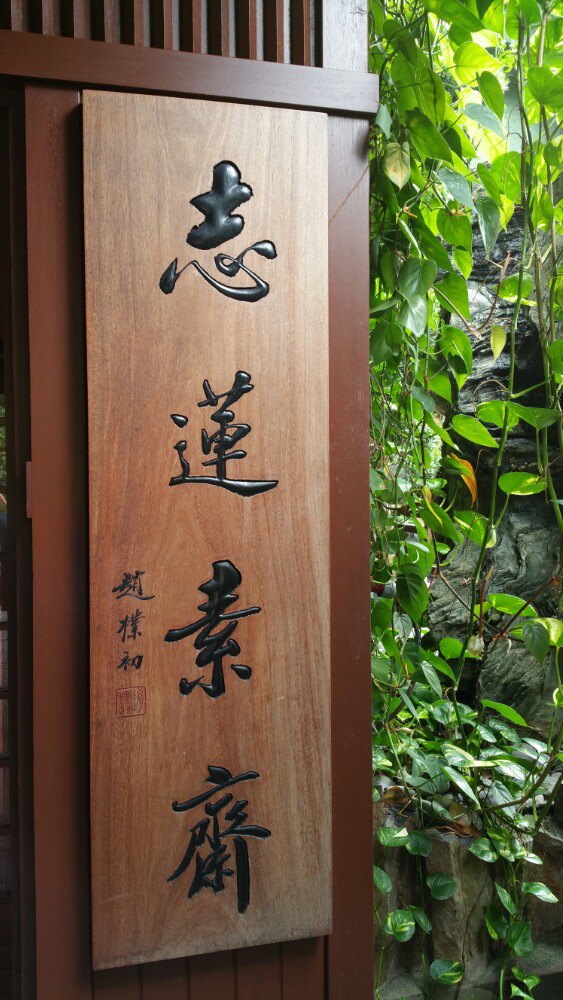 志蓮素齋
趙樸初